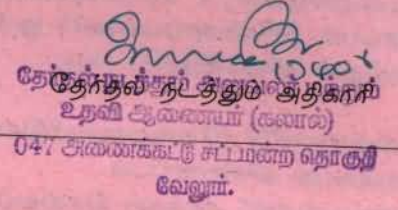 தேர்தல் நடத்தும் அதிகாரி
உதவி ஆணையர் (கலால்)
047 அணைக்கட்டு சட்டமன்ற தொகுதி
வேலூர்.